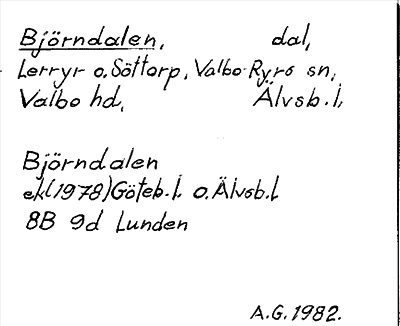 Björndalen, dal,
Lerryr o. Söttorp, Valbo-Ryrs sn,
Valbo hd, Älvsb. l.
Björndalen
ek (1978) Göteb. l. o. Älvsb. l.
8B 9d Lunden
A.G. 1982.